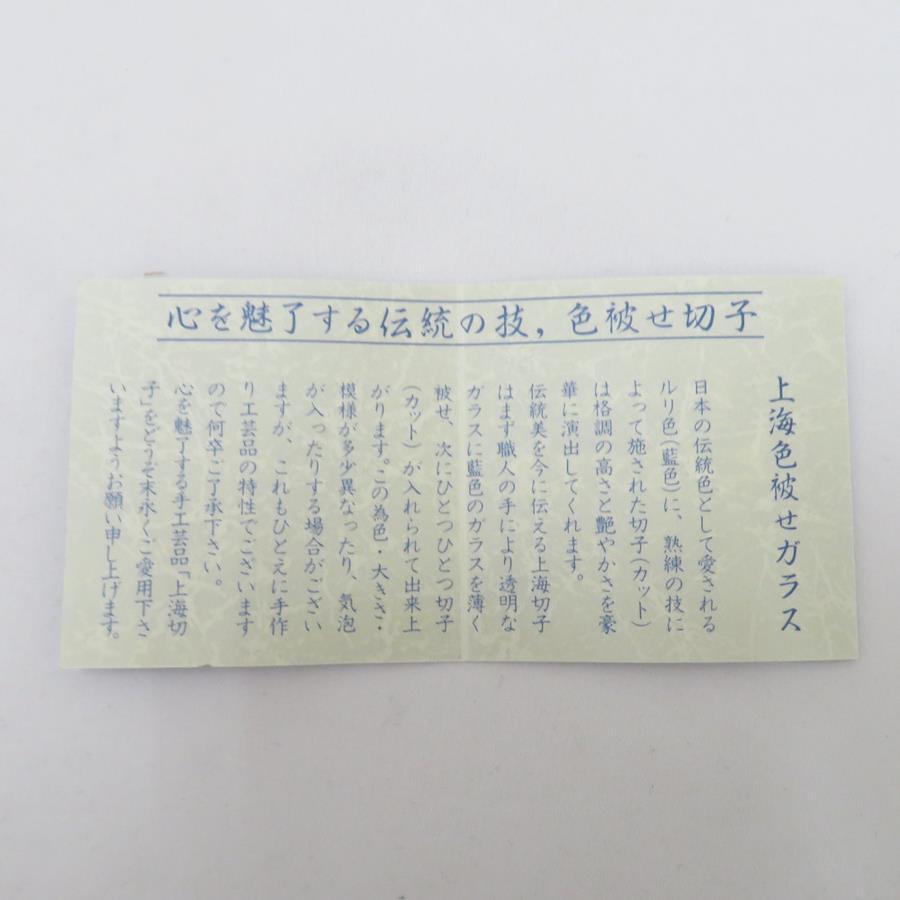 心を魅了する伝統の技,色被せ切子
上海色被せガラス
日本の伝統色として愛される
ルリ色(藍色)に、熟練の技に
よって施された切子(カット)
は格調の高さと艶やかさを豪
華に演出してくれます。
伝統美を今に伝える上海切子
はまず職人の手により透明な
ガラスに藍色のガラスを薄く
被せ、次にひとつひとつ切子
(カット)が入れられて出来上
がります。この為色・大きさ・
模様が多少異なったり、気泡
が入ったりする場合がござい
ますが、これもひとえに手作
り工芸品の特性でございます
ので何卒ご了承下さい。
心を魅了する手工芸品「上海切
子」をどうぞ末永くご愛用下さ
いますようお願い申し上げます。